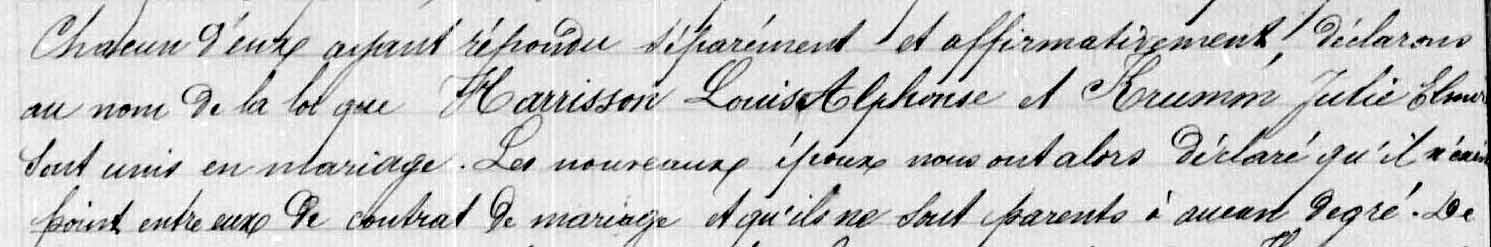 Chacun d'eux ayant répondu séparément et affirmativement, déclarons
au nom de la loi que Harrisson Louis Alphonse et Krumm, Julie
sont unis en mariage. Les nouveaux époux nous ont alors déclaré qu'il n'exis
point entre eux de contrat de mariage et qu'ils ne sont parents à aucun degré. De